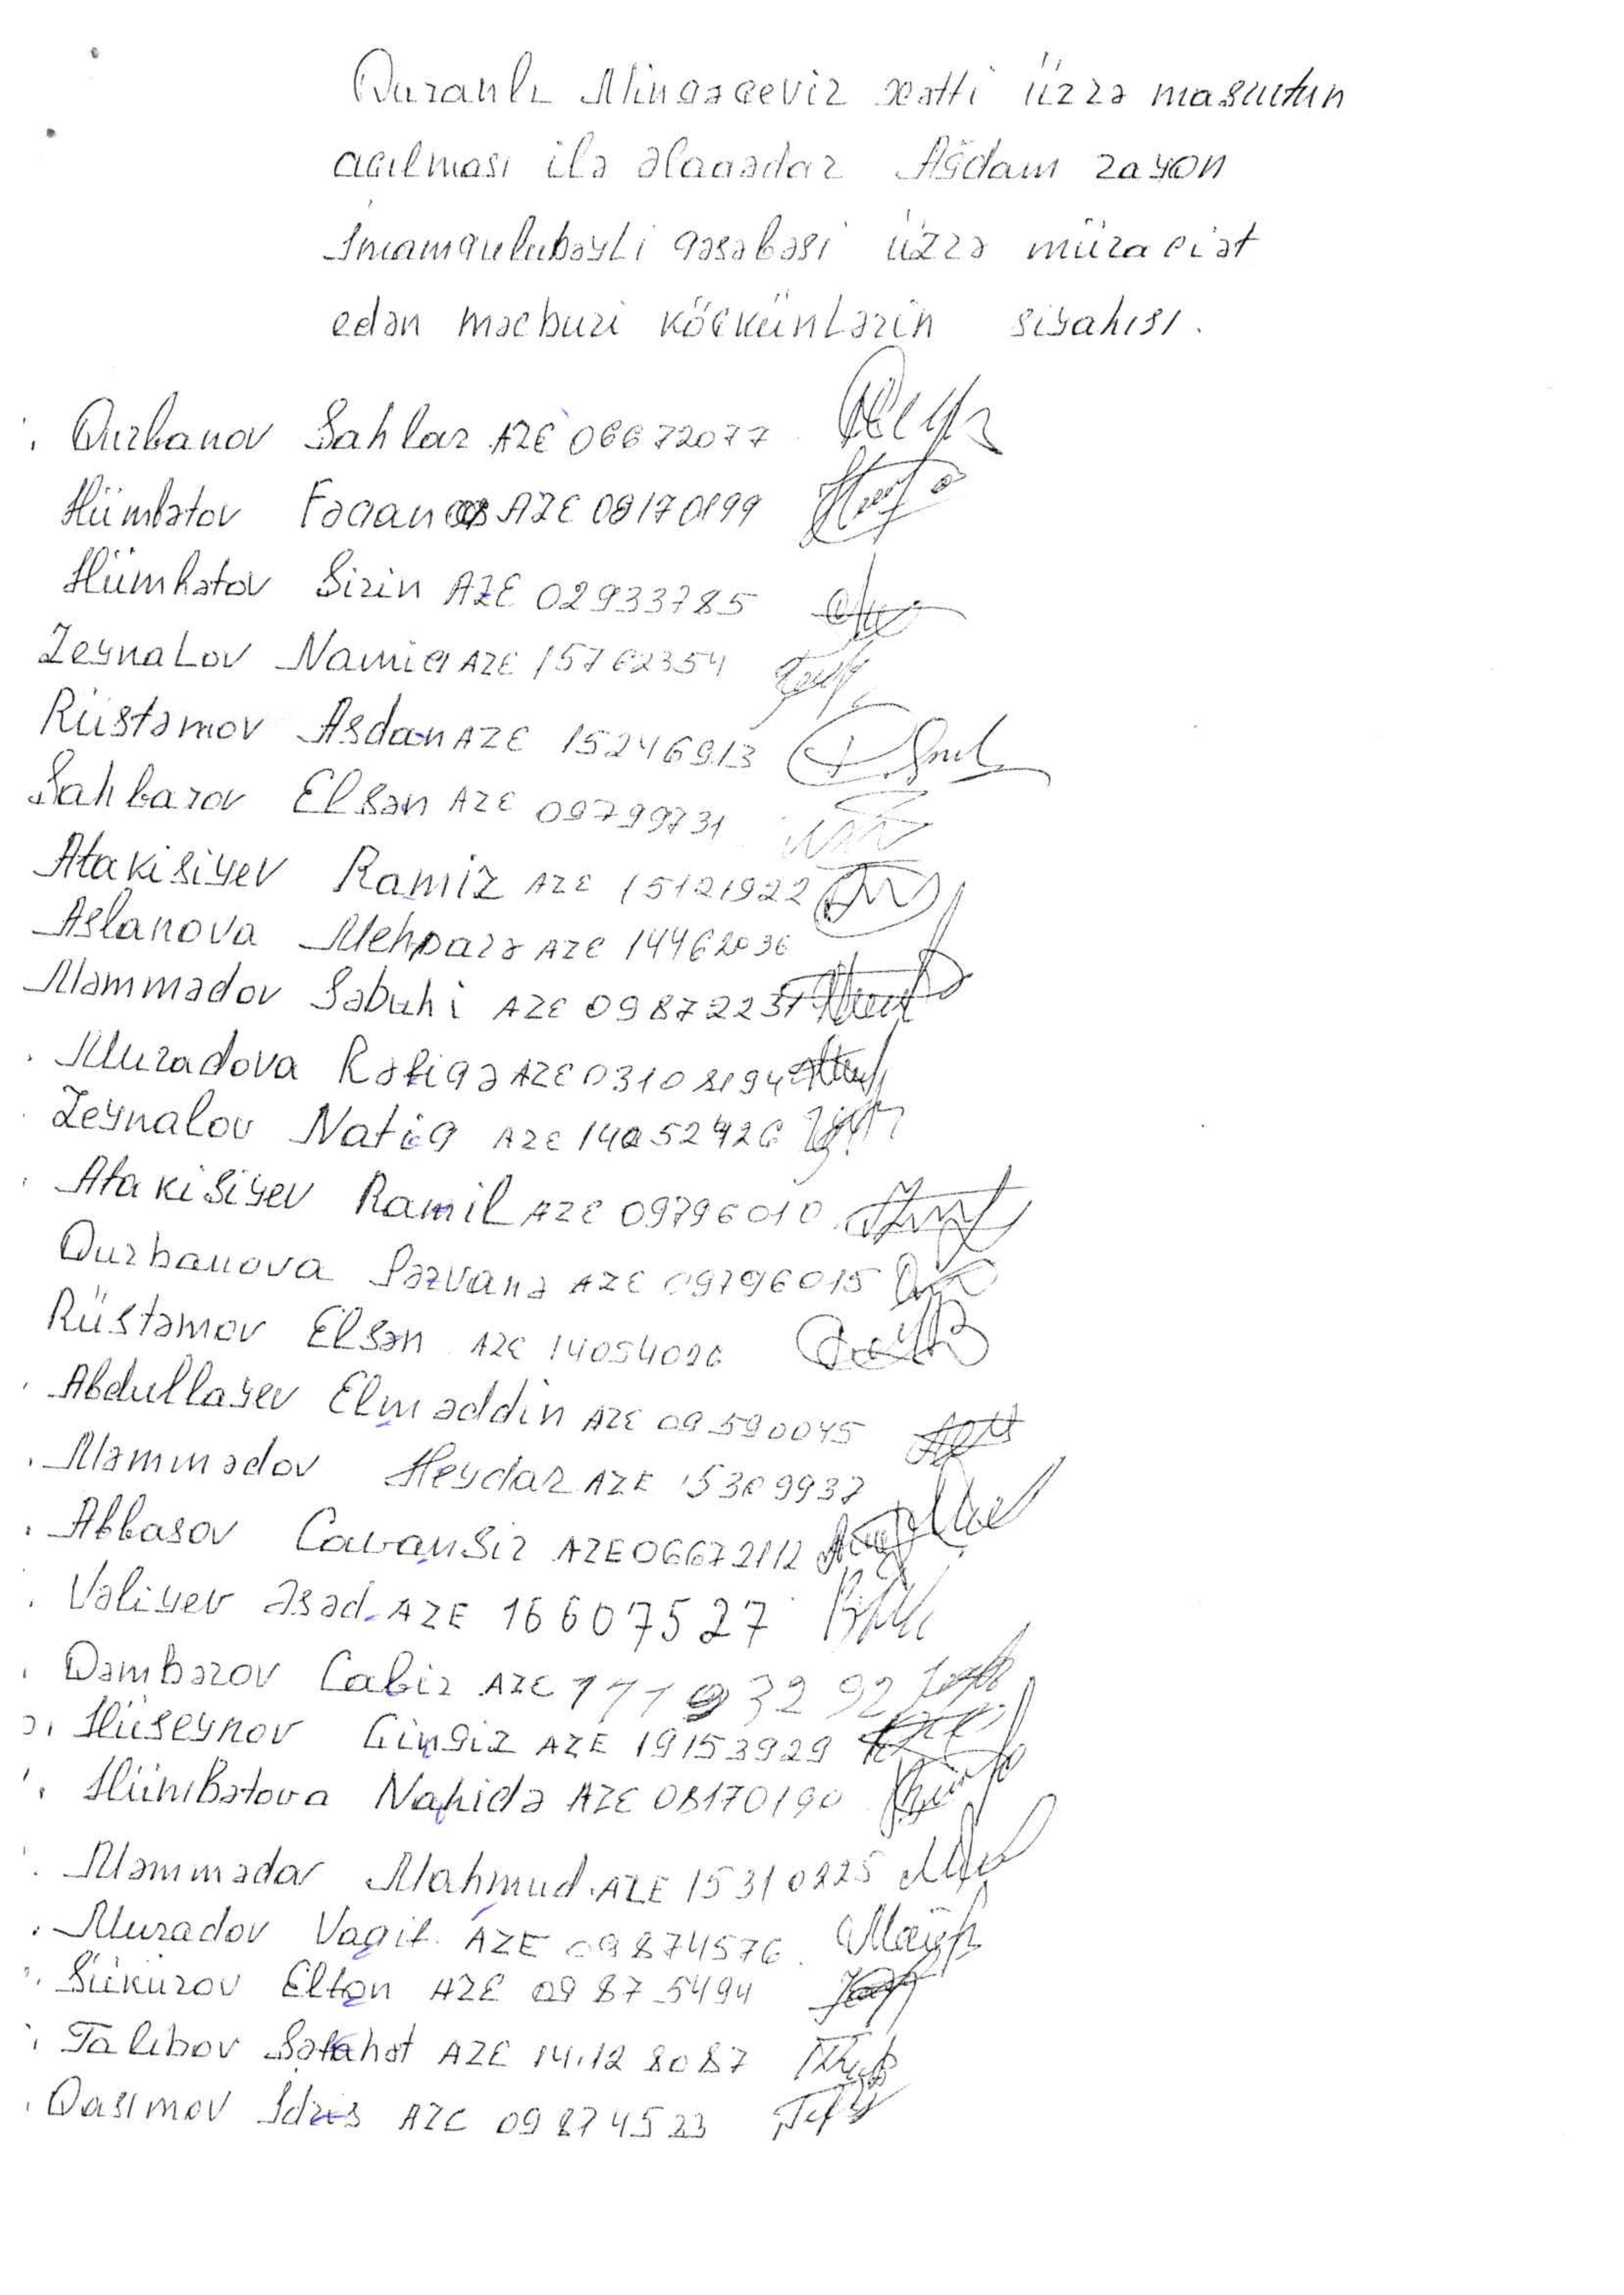 Quzanlı Mingəçeviz xətti üzrə maşrutun
açılması ilə əlaqədar Ağdam rayon
İmamqulubəyli qəsəbəsi üzrə müraciət
edən məcburi köçkünlərin siyahısı.
Qurbanov Şahlar AZE 06672077
Hümbətov Fəqan AZE 08170199
Hümbətov Şirin AZE 02933785
Zeynalov Namiq AZE 15762354
Rüstəmov Aşdan AZE 15246913
Şahbazov Elşən AZE 09799731
Atakişiyev Ramiz AZE 15121922
Aslanova Mehparə AZE 14462036
Məmmədov Səbuhi AZE 09872231
Muradova Rəfiqə AZE 03108194
Zeynalov Natiq AZE 14052426
Atakişiyev Ramil AZE 09796010
Qurbanova Pərvanə AZE 09796015
Rüstəmov Elşən AZE 14054026
Abdullayev Elməddin AZE 09590045
Məmmədov Heydar AZE 15309937
Abbasov Cavanşir AZE 06672112
Vəliyev Əsəd AZE 16607527
Qəmbərov Cabir AZE 17193292
Hüseynov Çingiz AZE 19153929
Hümbətova Nahidə AZE 08170190
Məmmədov Mahmud AZE 15310225
Muradov Vaqif AZE 09874576
Şükürov Eltən AZE 09875494
Talıbov Şəfahət AZE 14128087
Qasımov İdris AZE 09874523